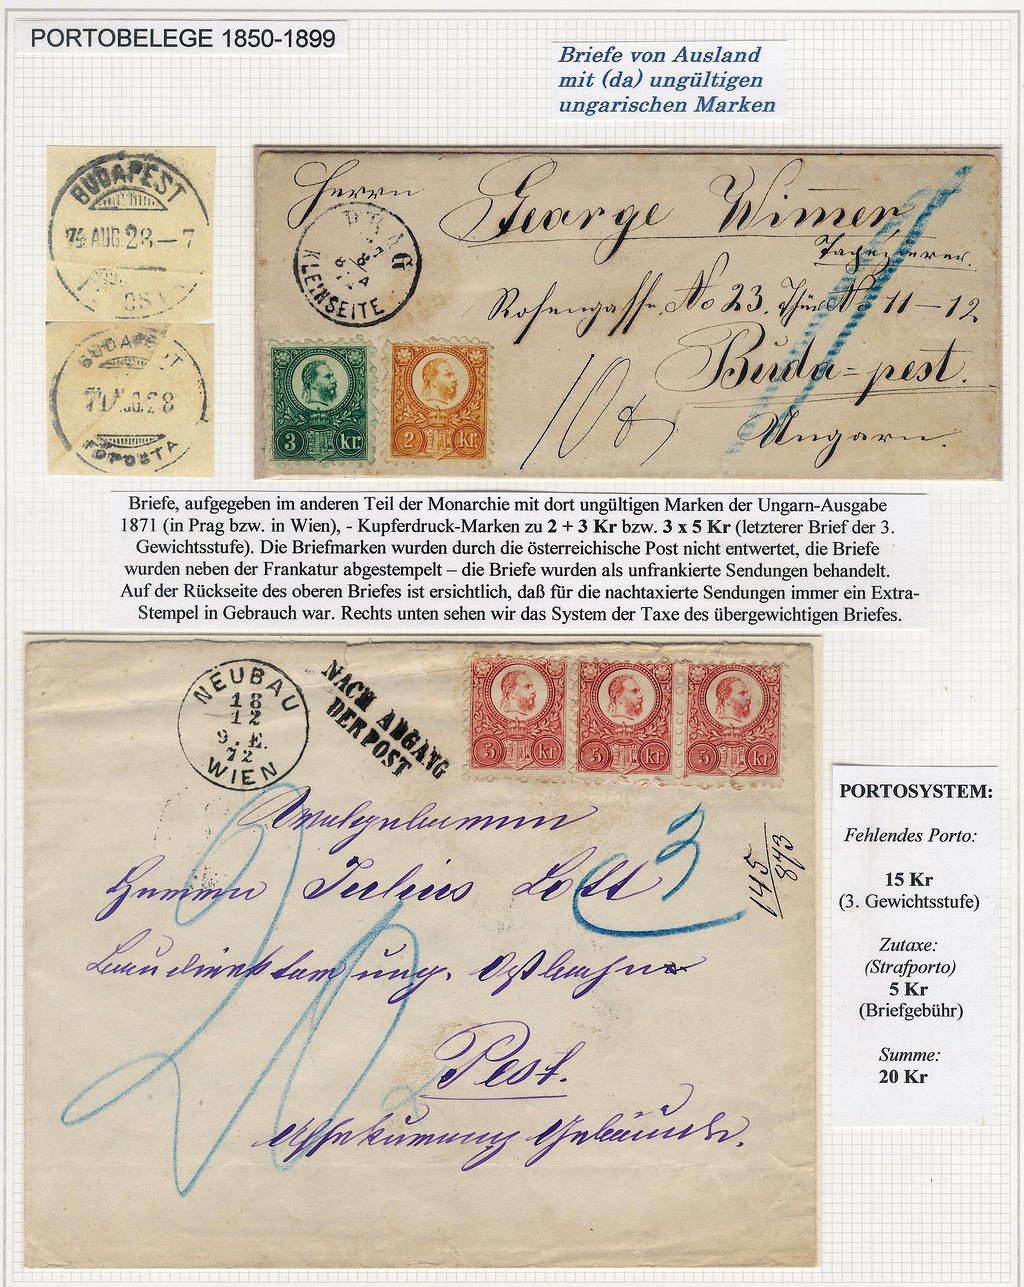 PORTOBELEGE 1850-1899
Briefe von Ausland
mit (da) ungültigen
ungarischen Marken
BUDAPEST
74 AUG.28-7
BUDAPEST
74 AUG.28
FŐPOSTA
Herrn
George Wimer,
Tapezierer.
PRAG
KLEINSEITE
Rosengasse, No 23. Thür No 11-12
Buda=pest.
Ungarn.
10
3 kr.
2 kr.
Briefe, aufgegeben im anderen Teil der Monarchie mit dort ungültigen Marken der Ungarn-Ausgabe
1871 (in Prag bzw. in Wien), - Kupferdruck-Marken zu 2 + 3 Kr bzw. 3 x 5 Kr (letzterer Brief der 3.
Gewichtsstufe). Die Briefmarken wurden durch die österreichische Post nicht entwertet, die Briefe
wurden neben der Frankatur abgestempelt – die Briefe wurden als unfrankierte Sendungen behandelt.
Auf der Rückseite des oberen Briefes ist ersichtlich, daß für die nachtaxierte Sendungen immer ein Extra-
Stempel in Gebrauch war. Rechts unten sehen wir das System der Taxe des übergewichtigen Briefes.
NEUBAU
18
12
9. E.
72
WIEN
NACH ABGANG
DER POST
5 kr
5 kr
5 kr
Herrn Julius Lott
3
145
873
Ostbahn
20
Pest.
Gebäude.
PORTOSYSTEM:
Fehlendes Porto:
15 Kr
(3. Gewichtsstufe)
Zutaxe:
(Strafporto)
5 Kr
(Briefgebühr)
Summe:
20 Kr